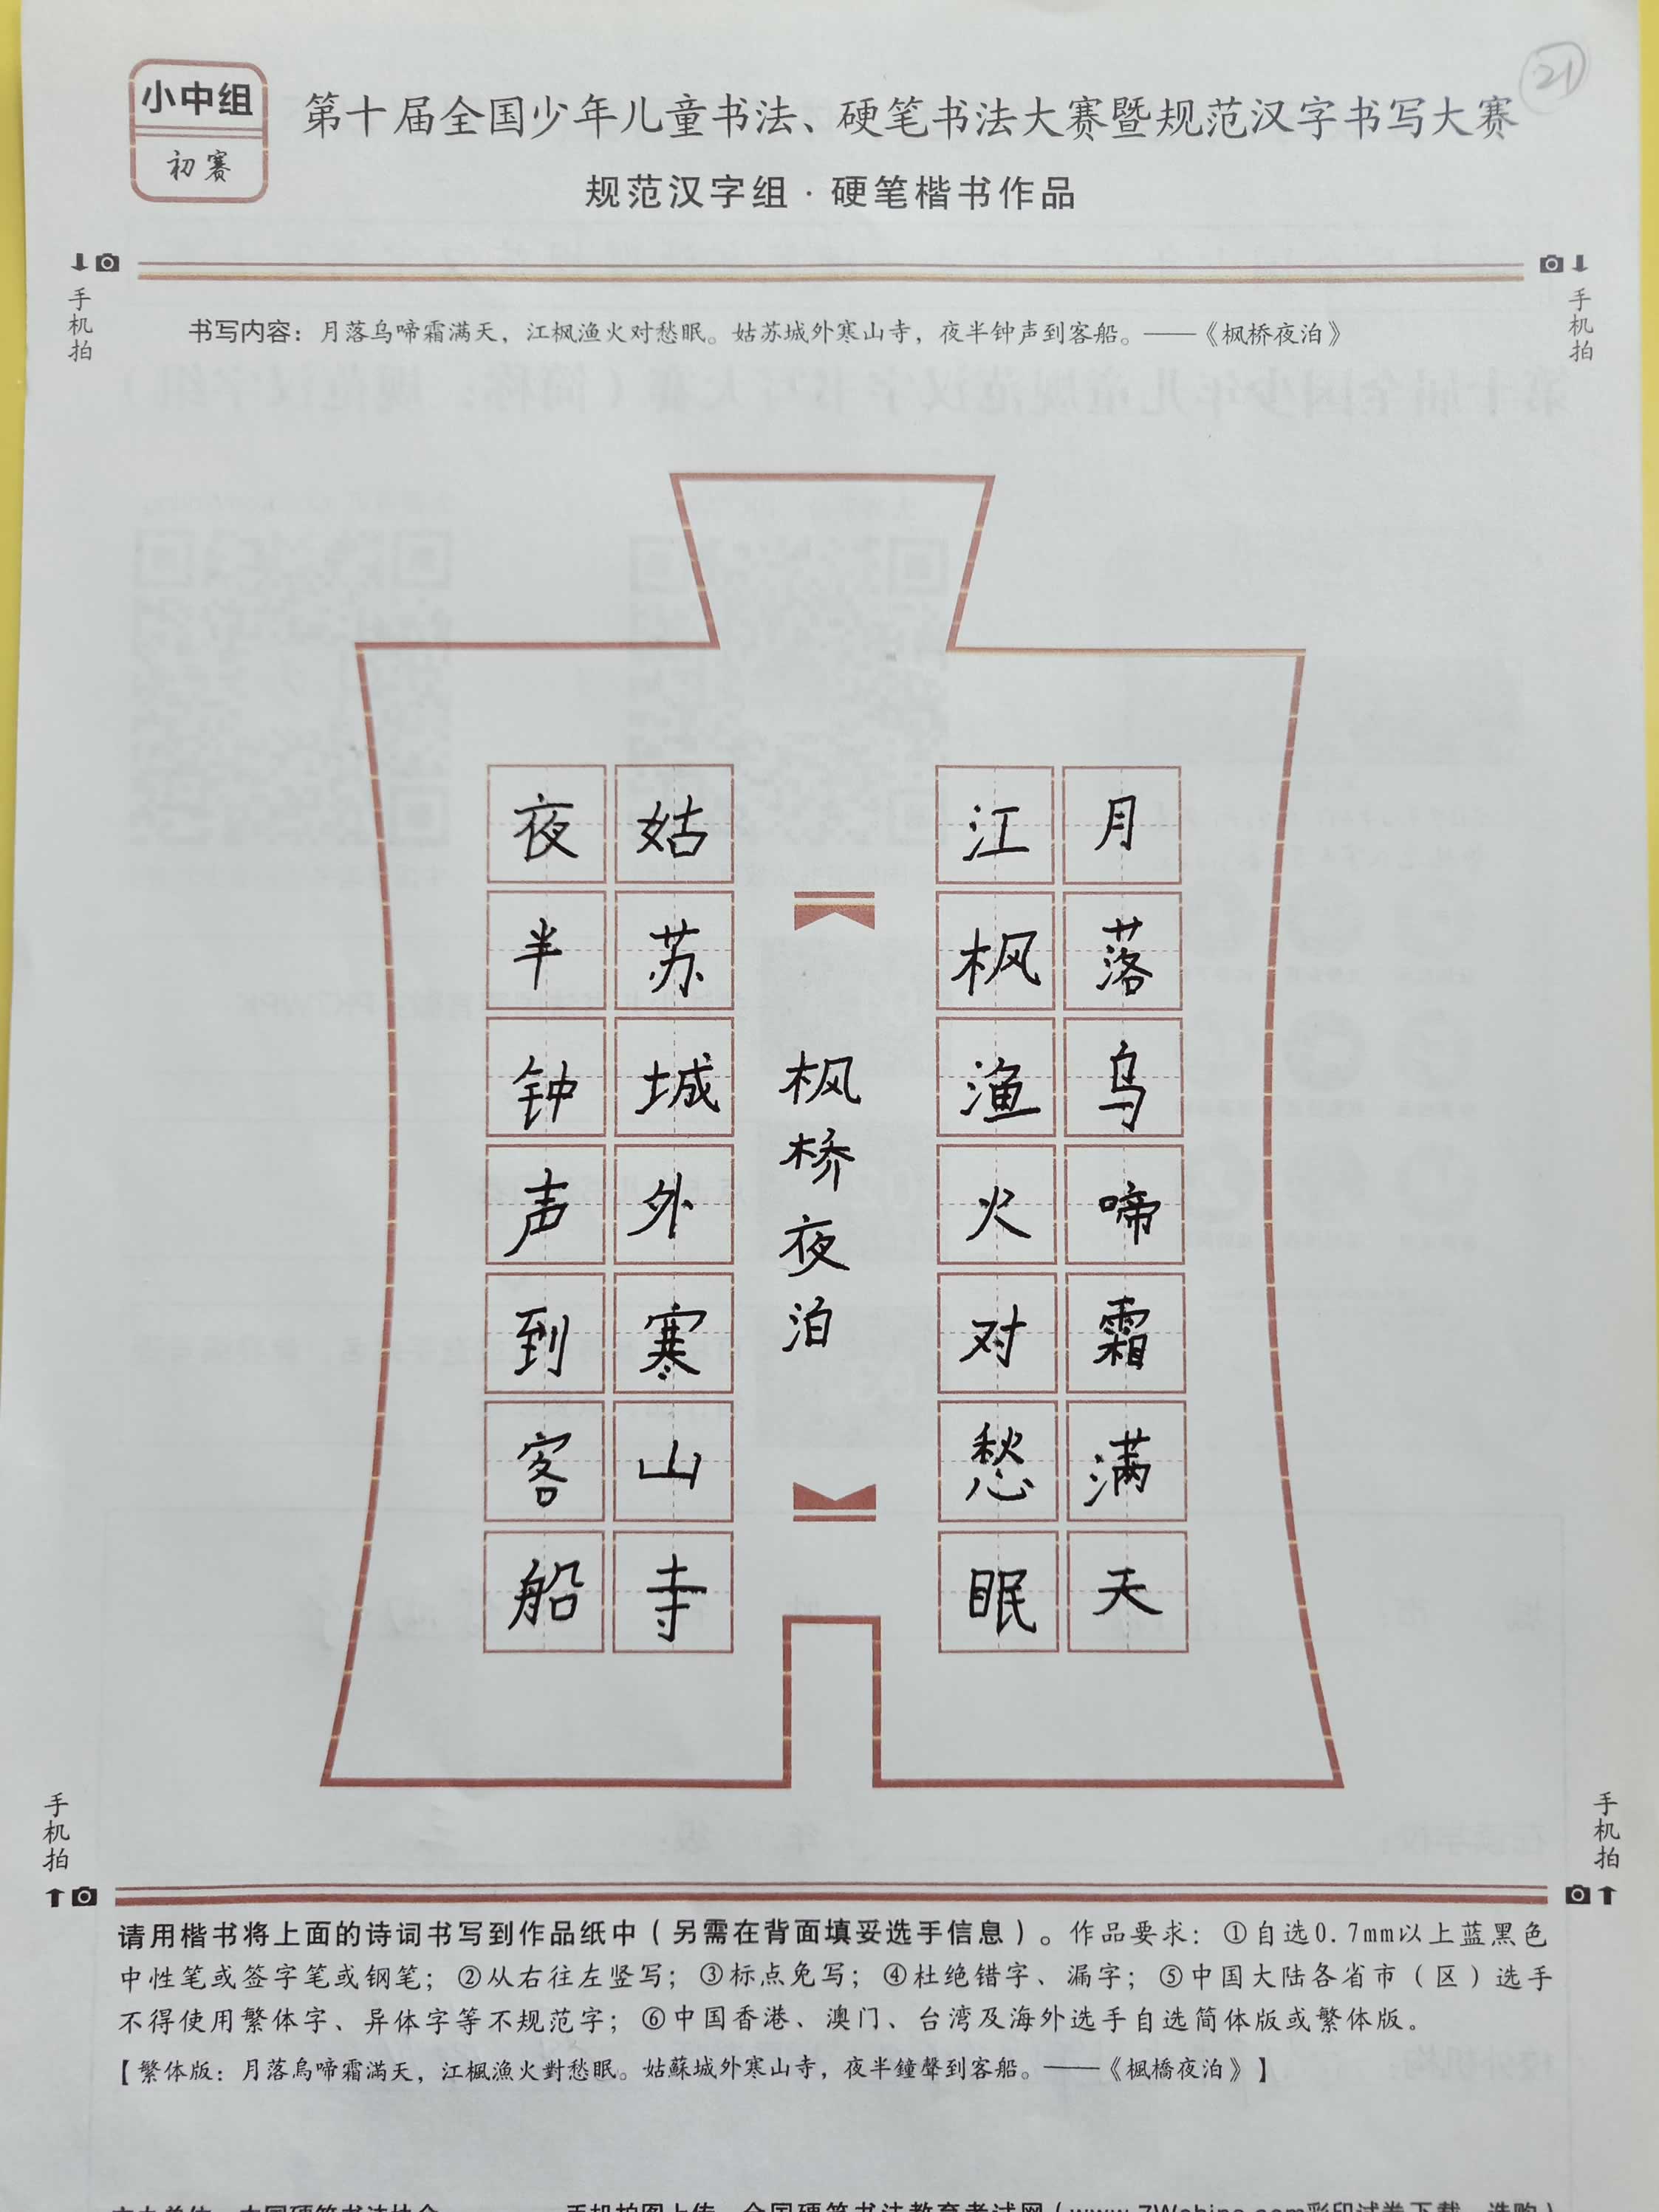 小中组
初赛
21
第十届全国少年儿童书法、硬笔书法大赛暨规范汉字书写大赛
规范汉字组·硬笔楷书作品
手机拍
手机拍
书写内容：月落乌啼霜满天，江枫渔火对愁眠。姑苏城外寒山寺，夜半钟声到客船。——《枫桥夜泊》
月落乌啼霜满天
江枫渔火对愁眠
枫桥夜泊
姑苏城外寒山寺
夜半钟声到客船
手机拍
手机拍
请用楷书将上面的诗词书写到作品纸中（另需在背面填妥选手信息）。作品要求：①自选0.7mm以上蓝黑色
中性笔或签字笔或钢笔；②从右往左竖写；③标点免写；④杜绝错字、漏字；⑤中国大陆各省市（区）选手
不得使用繁体字、异体字等不规范字；⑥中国香港、澳门、台湾及海外选手自选简体版或繁体版。
【繁体版：月落烏啼霜滿天，江楓漁火對愁眠。姑蘇城外寒山寺，夜半鐘聲到客船。——《楓橋夜泊》】